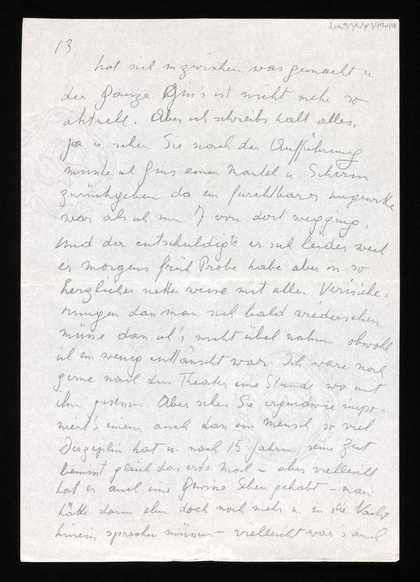 13
hat sich inzwischen was gemacht u
der ganze ist nicht mehr so
aktuell. Aber ich schreibs halt alles.
Ja u. sehen Sie nach der Aufführung
musste ich einen Mantel u. Schirm
zurückgehen da ein furchtbares
war als ich um 7 von dort wegging.
Und da entschuldigte er sich leider weil
er morgens früh Probe habe aber in so
herzlicher netter weise mit allen Versiche-
rungen dass man sich bald wiedersehen
müsse dass ich's nicht übel nahm obwohl
ich ein wenig enttäuscht war. Ich wäre noch
gerne nach dem Theater eine Stunde wo mit
ihm gesessen. Aber sehen Sie irgendwie impo-
niert's einem auch dass ein Mensch so viel
Disziplin hat u. nach 15 Jahren seine Zeit
gleich das erste Mal – aber vielleicht
hat er auch eine gehabt – man
hätte dann eben doch noch mehr u. in die Nacht
hinein sprechen müssen – vielleicht war's auch